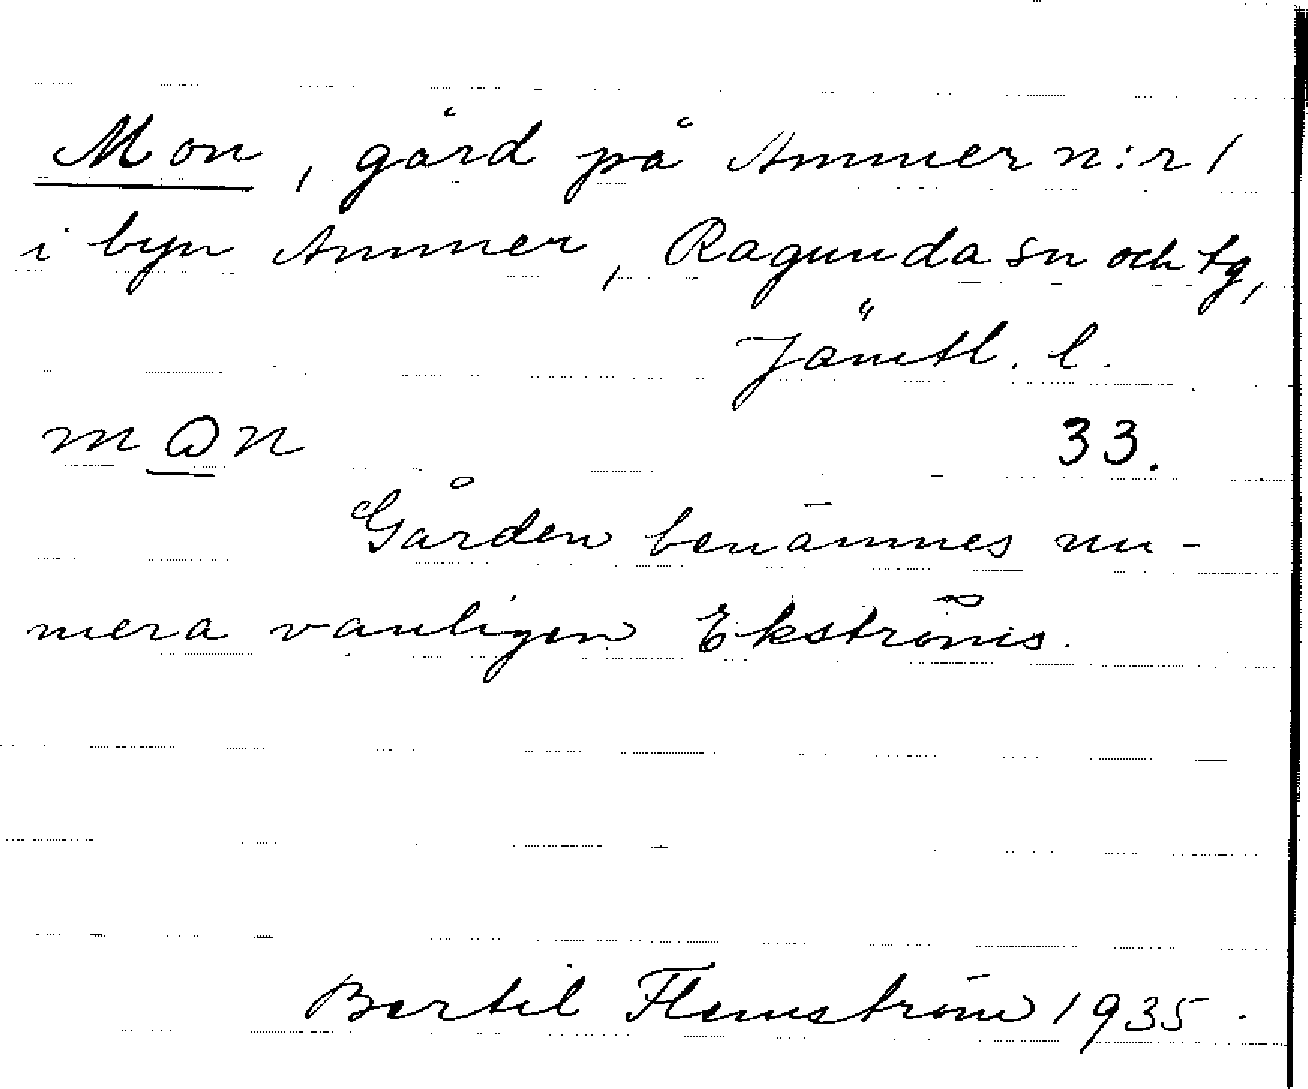 Mon, gård på Ammer n:r 1
i byn Ammer, Ragunda sn och tg,
Jämtl. l.
mωn 33.
Gården benämnes nu-
mera vanligen Ekströms.
Bertil Flemström 1935.